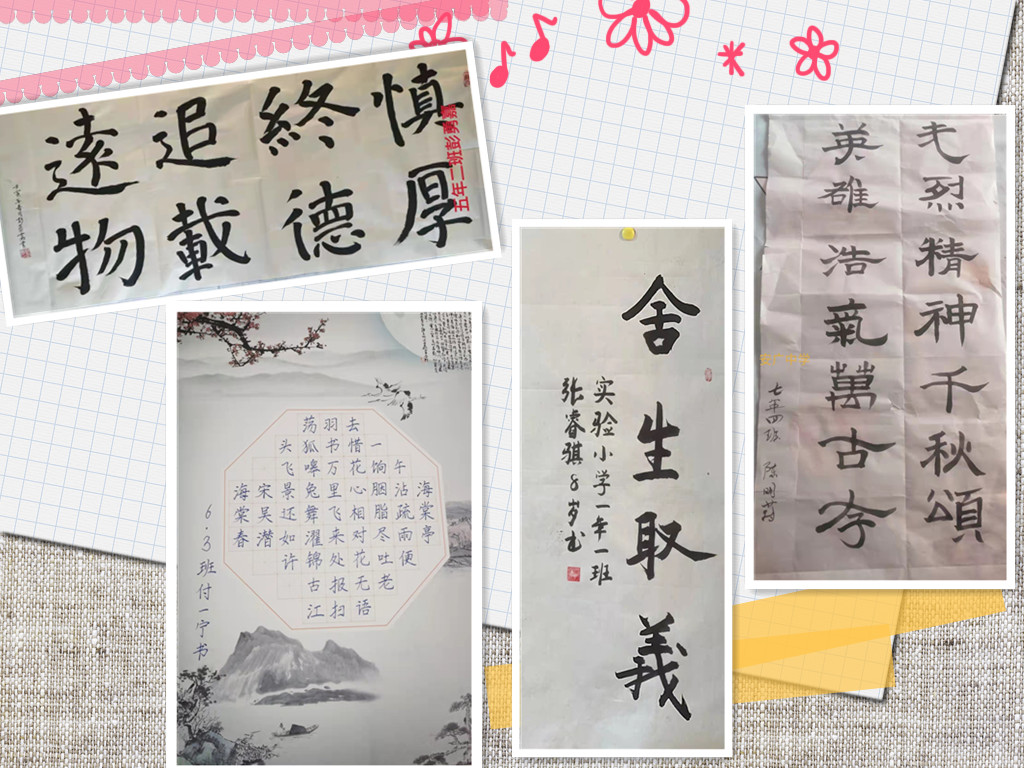 慎終追遠
厚德載物
五年二班彭
海棠春
宋吴潜
海棠亭
午沾疏雨便
一饷胭脂尽吐老
去惜花心相对花无语
羽书万里飞来处报扫
荡狐嗥兔舞濯锦古江
头飞景还如许
6.3班付一宁书
舍生取義
实验小学一年一班
张睿骐8岁书
光烈精神千秋頌
英雄浩氣萬古存
七年四班